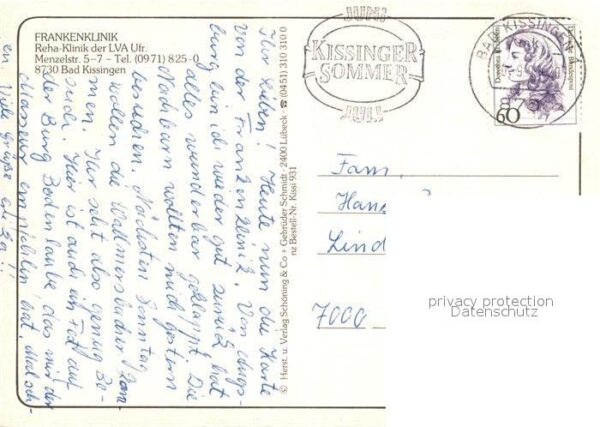 FRANKENKLINIK
Reha-Klinik der LVA Ufr.
Menzelstr. 5–7 – Tel. (0971) 825-0
8730 Bad Kissingen
Ihr Lieben! Heute nun die Karte
von der Frankenklinik. Von Augs-
burg bin ich wieder gut zurück hat
alles wunderbar geklappt. Die
Nachbarn wollten mich gestern
besuchen. Nächsten Sonntag
wollen die
men. Ihr seht also genug Be-
such. Hier ist auch ein auf
der Burg Bodenlaube das mir der
Masseur empfohlen hat.
Viele Grüße
© Herst. u. Verlag Schöning & Co + Gebrüder Schmidt · 2400 Lübeck · ☎ (0451) 310 310 0
nz Bestell-Nr. Kissi 931
JUNI
KISSINGER
SOMMER
JULI
BAD KISSINGEN 1
Deutsche Bundespost
60
Fam.
7000
privacy protection
Datenschutz